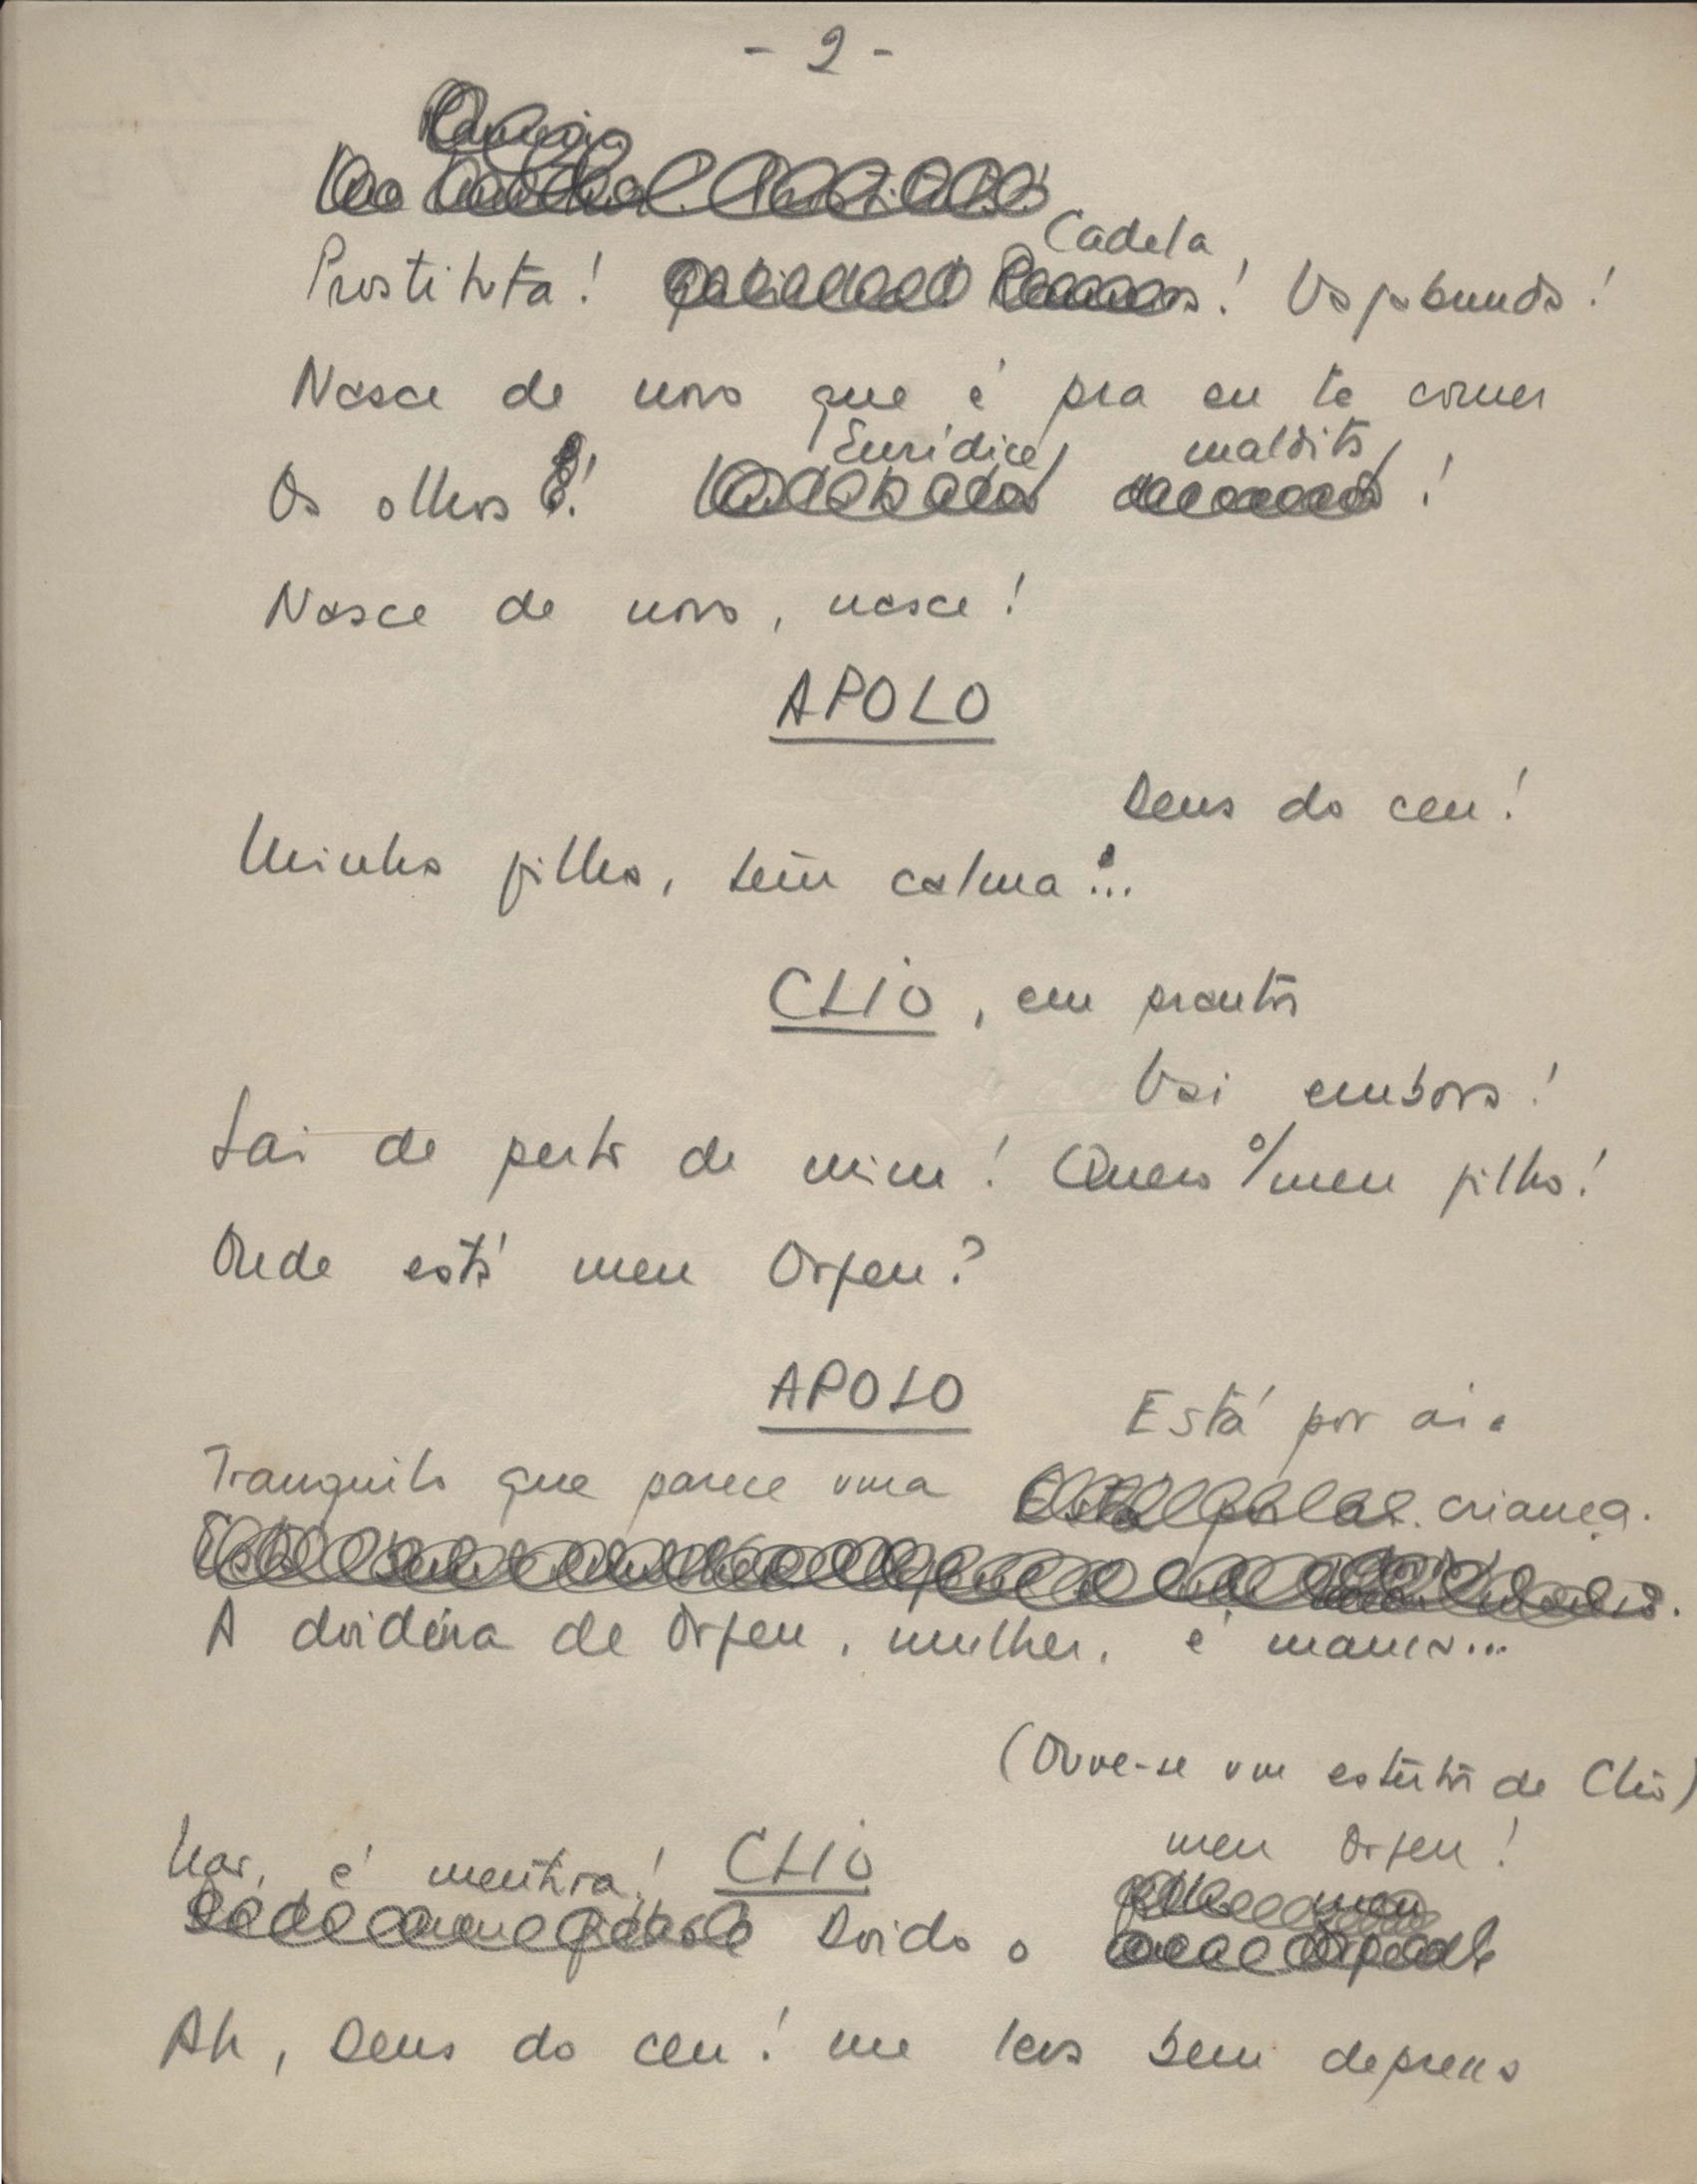 - 2 -
Cadela,
Prostituta! ! Vagabunda!
Nasce de novo que é pra eu te comer
Eurídice maldita
Os olhos! !
Nasce de novo, nasce!
APOLO
Deus do ceu!
Minha filha, tem calma!...
CLIO, em prantos
Vai embora!
Sai de perto de mim! Quero o meu filho!
Onde está meu Orfeu?
APOLO
Está por aí.
Tranquilo que parece uma criança.
A doidera de Orfeu, mulher, é mansa...
(Ouve-se um estertor de Clio)
CLIO
meu Orfeu!
Não, é mentira!
Doido o
Ah, Deus do ceu! me leva bem depressa